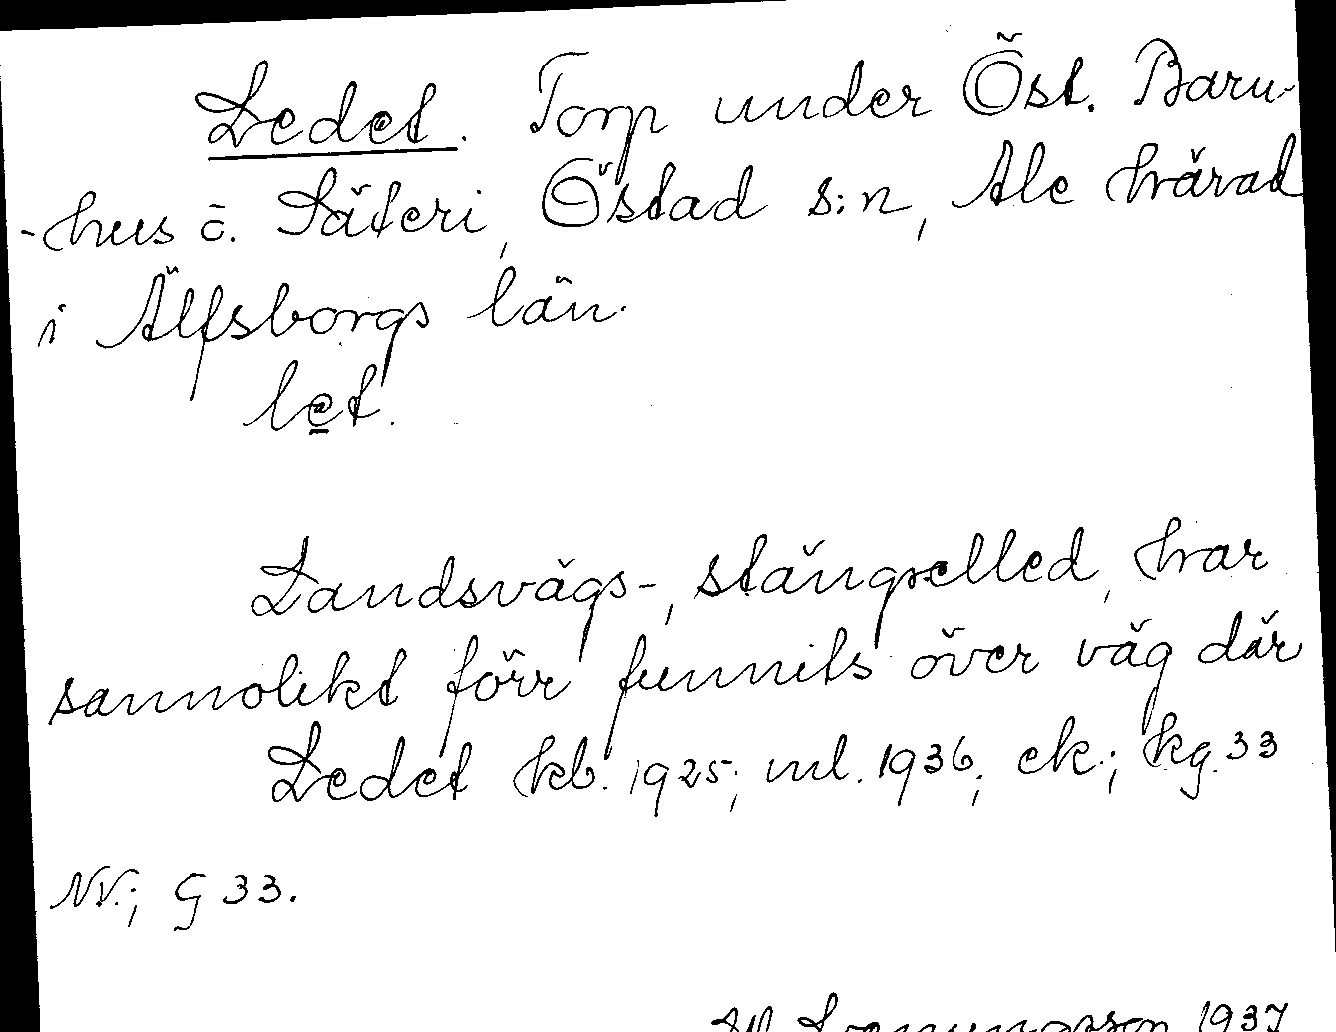 Ledet. Torp under Öst. Barn-
-hus o. Säteri, Östad s:n, Ale härad
i Älfsborgs län.
let.
Landsvägs-, stängselled, har
sannolikt förr funnits över väg där
Ledet kb. 1925; ml. 1936; ek.; kg. 33
NV.; G 33.
1937